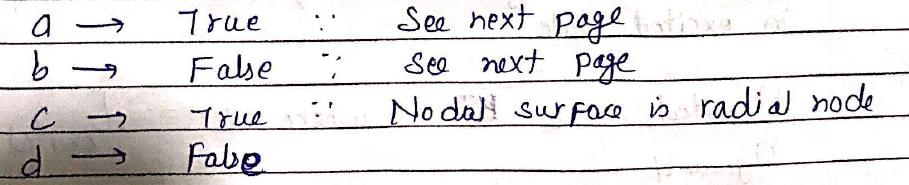 a → True ∵ See next page
b → False ∵ See next page
c → True ∵ Nodal surface is radial node
d → False